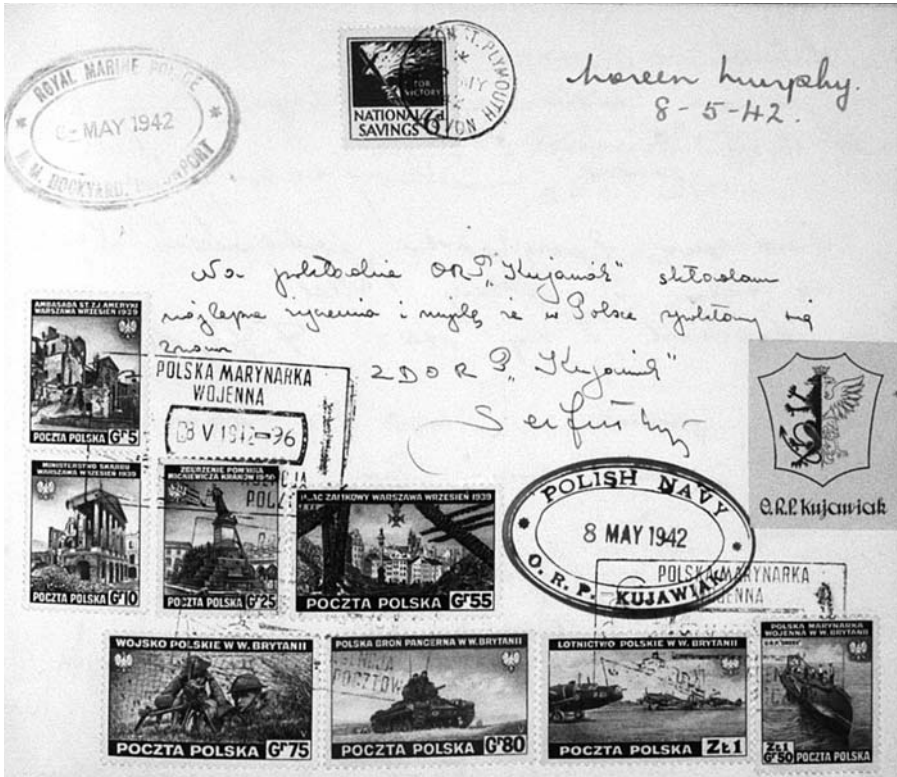 ROYAL MARINE POLICE
8 - MAY 1942
H. M. DOCKYARD, DEVONPORT
FOR
VICTORY
NATIONAL
SAVINGS
6d
PLYMOUTH
DEVON
Noreen Murphy.
8-5-42.
Na pokładzie ORP „Kujawiak" składam
najlepsze życzenia i myślę że w Polsce spotkamy się
znowu
Z D O R P „Kujawiak"
AMBASADA ST. ZJ AMERYKI
WARSZAWA WRZESIEŃ 1939
POCZTA POLSKA Gr 5
POLSKA MARYNARKA
WOJENNA
08 V 1942-96
MINISTERSTWO SKARBU
WARSZAWA WRZESIEŃ 1939
POCZTA POLSKA Gr 10
ZBURZENIE POMNIKA
MICKIEWICZA KRAKÓW 1940
POCZTA POLSKA Gr 25
PLAC ZAMKOWY WARSZAWA WRZESIEŃ 1939
POCZTA POLSKA Gr 55
POLISH NAVY
8 MAY 1942
O. R. P. - KUJAWIAK
O.R.P. Kujawiak
POLSKA MARYNARKA
WOJENNA
WOJSKO POLSKIE W W. BRYTANII
POCZTA POLSKA Gr 75
POLSKA BROŃ PANCERNA W W. BRYTANII
POCZTA POLSKA Gr 80
LOTNICTWO POLSKIE W W. BRYTANII
POCZTA POLSKA ZŁ 1
POLSKA MARYNARKA
WOJENNA W W. BRYTANII
ZŁ 1
Gr 50 POCZTA POLSKA